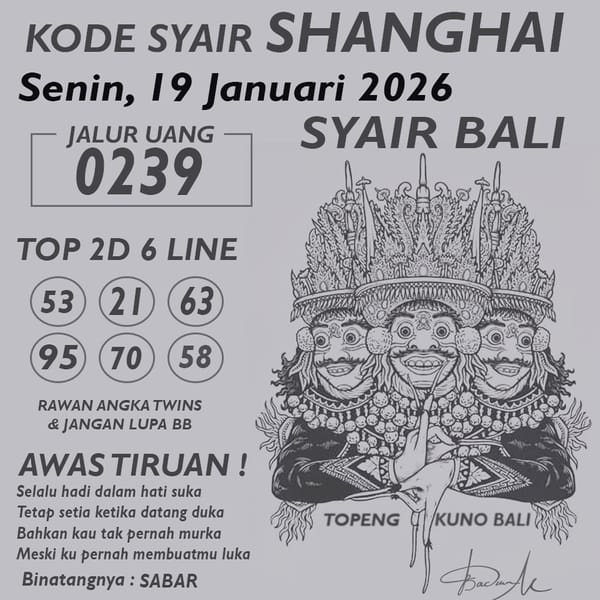 KODE SYAIR SHANGHAI
Senin, 19 Januari 2026
JALUR UANG
0239
SYAIR BALI
TOP 2D 6 LINE
53 21 63
95 70 58
RAWAN ANGKA TWINS
& JANGAN LUPA BB
AWAS TIRUAN !
Selalu hadi dalam hati suka
Tetap setia ketika datang duka
Bahkan kau tak pernah murka
Meski ku pernah membuatmu luka
Binatangnya : SABAR
TOPENG KUNO BALI